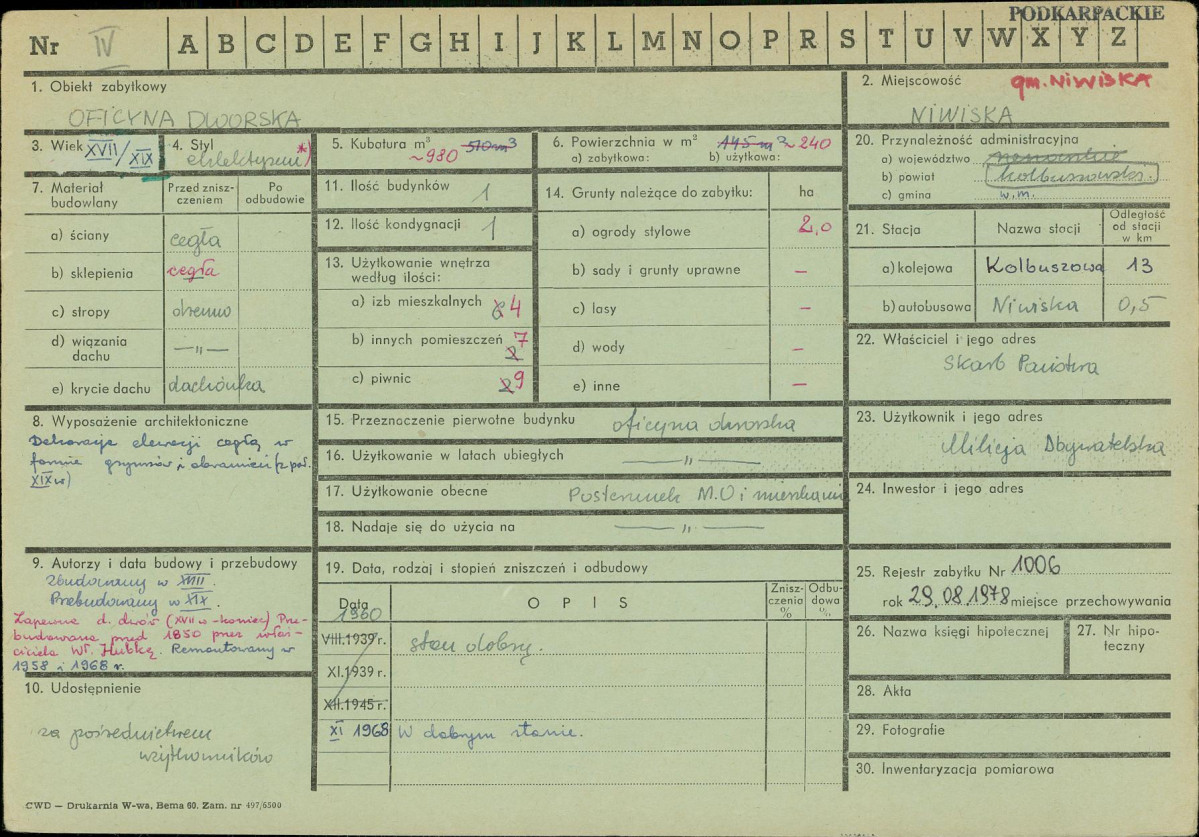 PODKARPACKIE
Nr IV A B C D E F G H I J K L M N O P R S T U V W X Y Z
1. Obiekt zabytkowy
OFICYNA DWORSKA
2. Miejscowość gm. NIWISKA
NIWISKA
3. Wiek XVII/XIX
4. Styl
5. Kubatura m³ ~980 510 m³
6. Powierzchnia w m² 145 m² ~240
a) zabytkowa: b) użytkowa:
20. Przynależność administracyjna
a) województwo rzeszowskie
b) powiat kolbuszowski.
c) gmina w.m.
7. Materiał budowlany
Przed znisz-
czeniem
Po
odbudowie
a) ściany cegła
b) sklepienia cegła
c) stropy drewno
d) wiązania
dachu —„—
e) krycie dachu dachówka
11. Ilość budynków 1
12. Ilość kondygnacji 1
13. Użytkowanie wnętrza
według ilości:
a) izb mieszkalnych 6 4
b) innych pomieszczeń 2 7
c) piwnic 2 9
14. Grunty należące do zabytku: ha
a) ogrody stylowe 2,0
b) sady i grunty uprawne –
c) lasy –
d) wody –
e) inne –
21. Stacja Nazwa stacji Odległość
od stacji
w km
a) kolejowa Kolbuszowa 13
b) autobusowa Niwiska 0,5
22. Właściciel i jego adres
Skarb Państwa
8. Wyposażenie architektoniczne
Dekoracja elewacji cegłą w
formie gzymsów i obramień (z poł.
XIX w)
15. Przeznaczenie pierwotne budynku oficyna dworska
16. Użytkowanie w latach ubiegłych —„—
17. Użytkowanie obecne Posterunek M.O i mieszkanie
18. Nadaje się do użycia na —„—
23. Użytkownik i jego adres
Milicja Obywatelska
24. Inwestor i jego adres
9. Autorzy i data budowy i przebudowy
Zbudowany w XVIII.
Przebudowany w XIX.
Zapewne d. dwór (XVII w - koniec) Prze-
budowana przed 1850 przez właś-
ciciela Wł. Hubkę. Remontowany w
1958 i 1968 r.
19. Data, rodzaj i stopień zniszczeń i odbudowy
Data OPIS Znisz-
czenia
% Odbu-
dowa
%
1960
VIII.1939 r. stan dobry.
XI.1939 r.
XII.1945 r.
XI 1968 W dobrym stanie.
25. Rejestr zabytku Nr 1006
rok 29.08.1978 miejsce przechowywania
26. Nazwa księgi hipotecznej
27. Nr hipo-
teczny
28. Akta
29. Fotografie
30. Inwentaryzacja pomiarowa
10. Udostępnienie
za pośrednictwem
użytkowników
CWD — Drukarnia W-wa, Bema 60. Zam. nr 497/6500